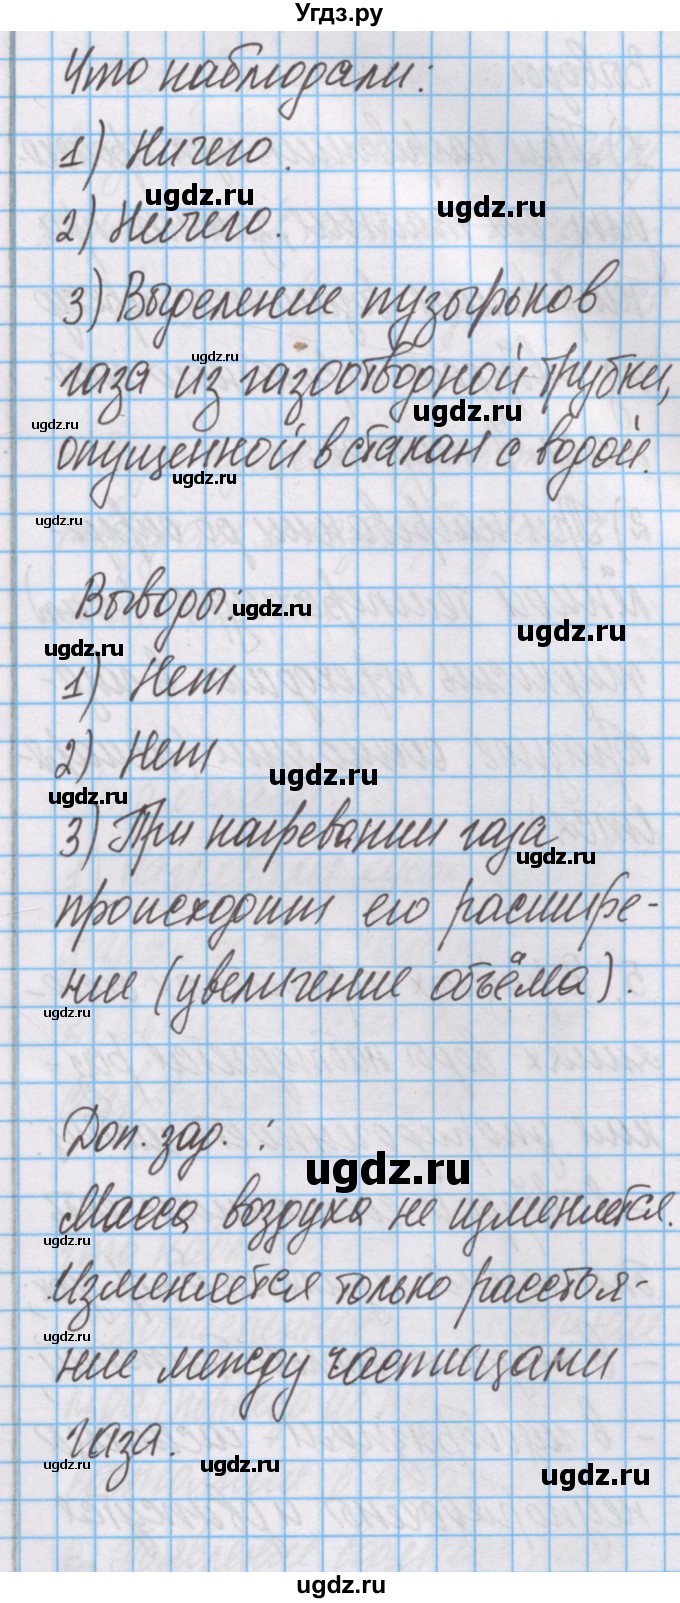 Угдз.ру
Что наблюдали:
1) Ничего.
ugdz.ru
ugdz.ru
2) Ничего.
3) Выделение пузырьков
ugdz.ru
газа из газоотводной трубки,
ugdz.ru
ugdz.ru
опущенной в стакан с водой.
ugdz.ru
ugdz.ru
Выводы:
ugdz.ru
ugdz.ru
ugdz.ru
1) Нет
2) Нет
ugdz.ru
ugdz.ru
3) При нагревании газа
ugdz.ru
происходит его расшире-
ние (увеличение объёма).
ugdz.ru
Доп. зад. :
ugdz.ru
Масса воздуха не изменяется.
ugdz.ru
Изменяется только расстоя-
ugdz.ru
ние между частицами
газа.
ugdz.ru
ugdz.ru
ugdz.ru
ugdz.ru